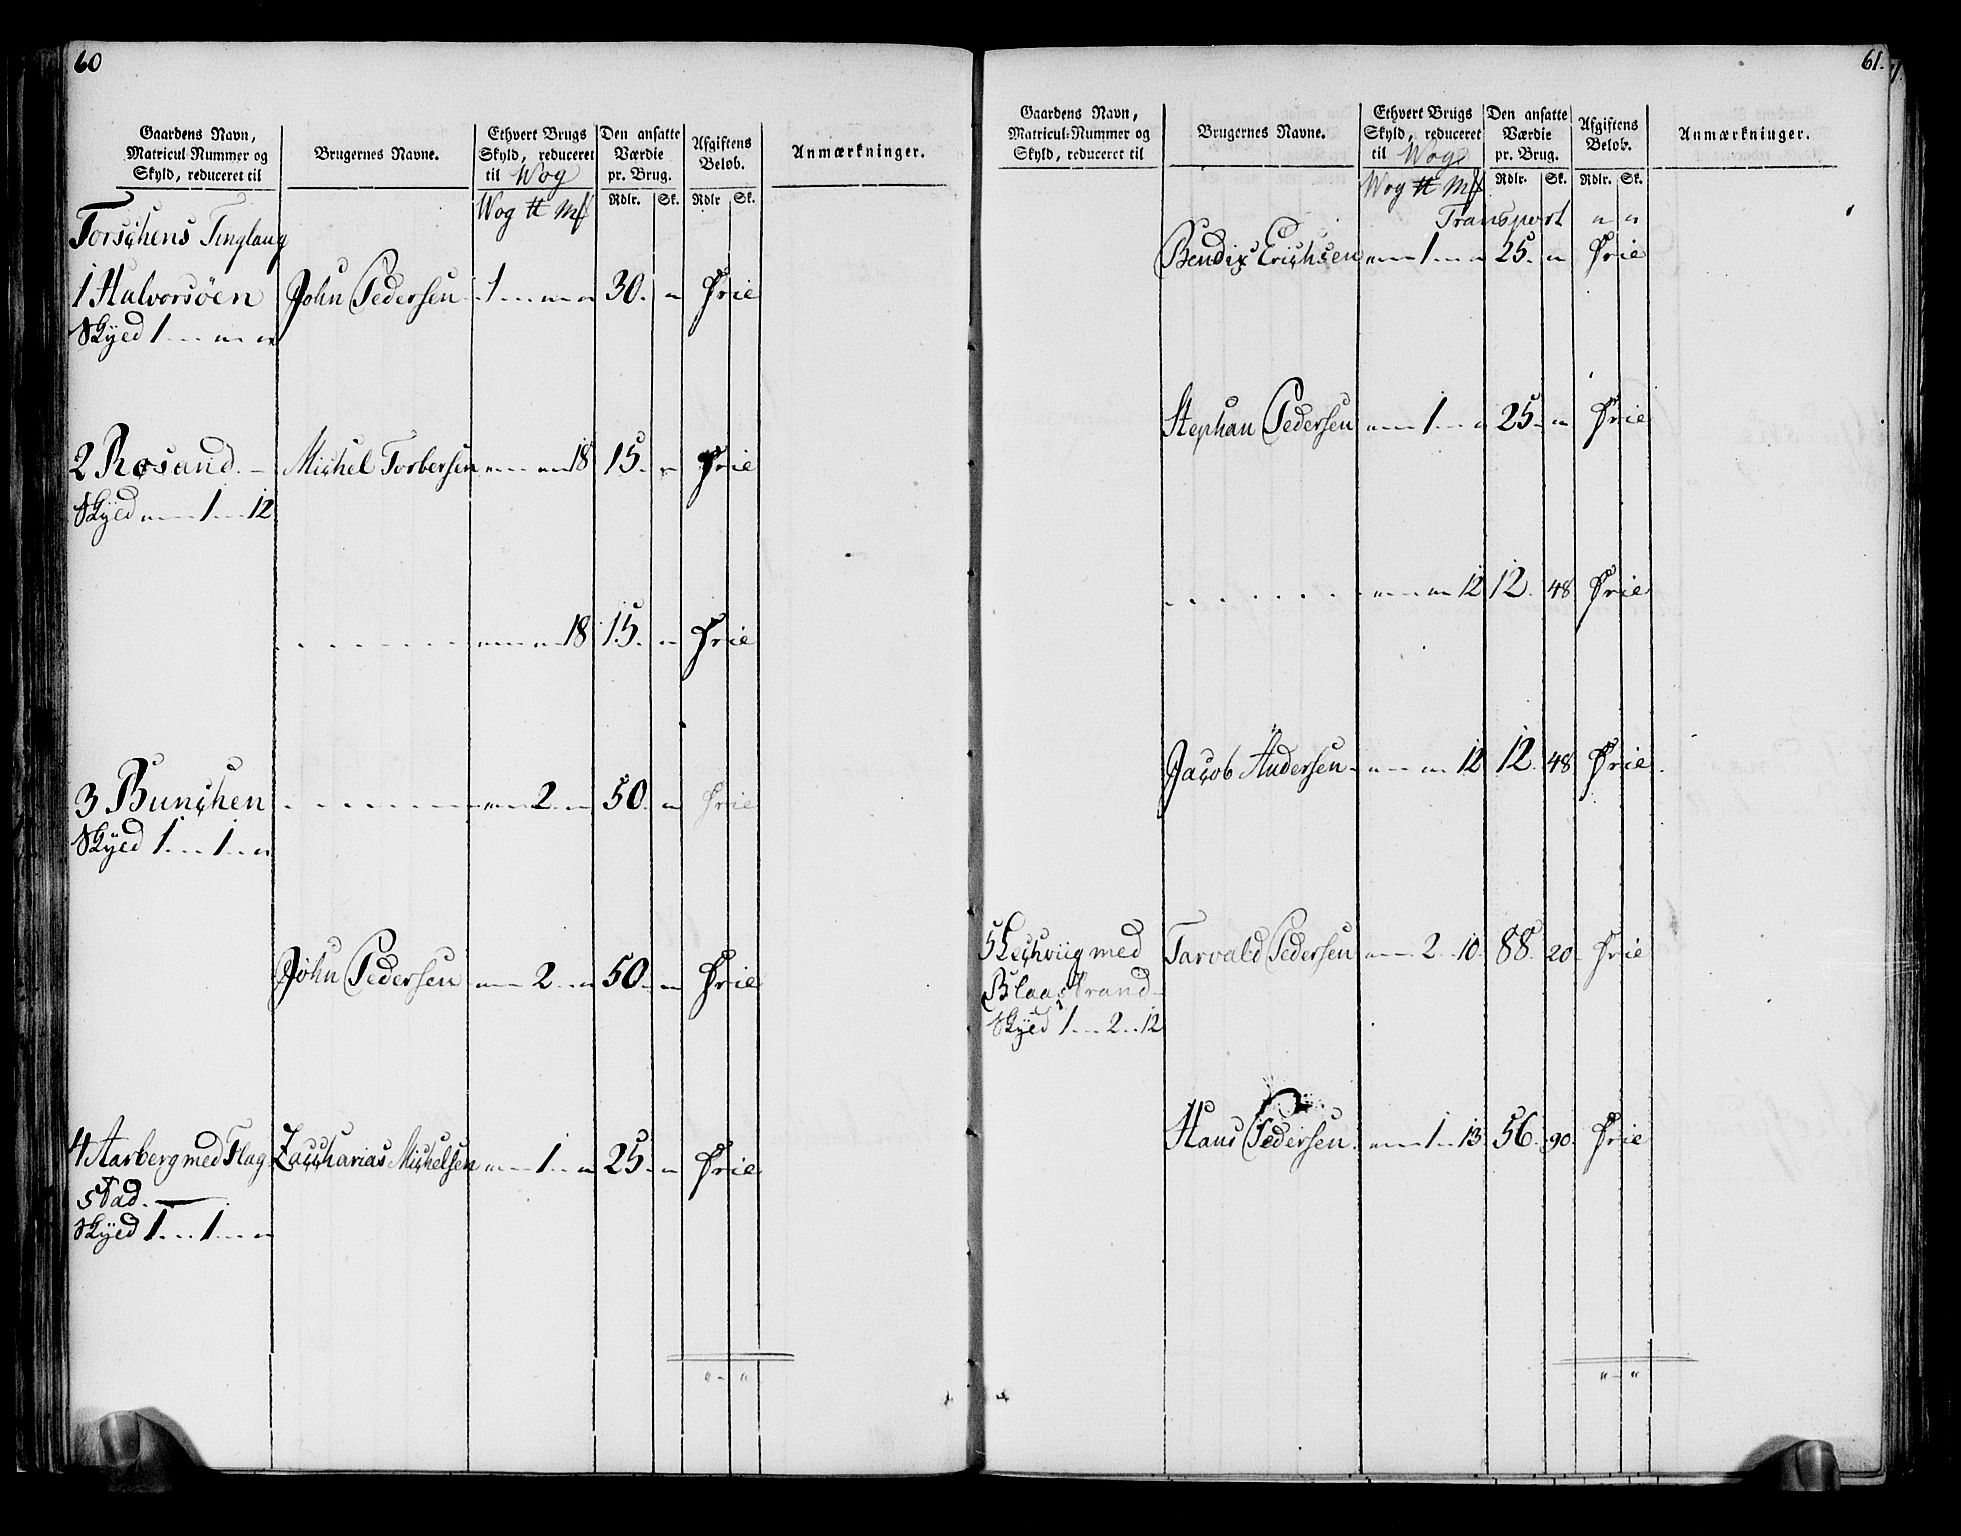 60
Gaardens Navn, Matricul-Nummer og Skyld, reduceret til | Brugernes Navne. | Ethvert Brugs Skyld, reduceret til Wog | Den ansatte Værdie pr. Brug. | Afgiftens Beløb. | Anmærkninger.
Wog ℔ mƒ | Rdlr. Sk. | Rdlr Sk.
Torschens Tinglaug
1 Halvorsöen | John Pedersen | 1 - - " - " | 30. - " | Frie
Skyld 1 - - " - "
2 Rosand. - | Michel Torbersen | " - - " - 18 | 15. - " | Frie
Skyld " - - 1 - - 12
- - - - - - | " - - " - 18 | 15. - " | Frie
3 Bunchen | - - - - - - | " - - 2. - " | 50. - " | Frie
Skyld 1 - - 1 - - "
John Pedersen | " - - 2 - - " | 50. - " | Frie
4 Aarberg med Flag- | Zaccharias Michelsen | " - - 1 - - " | 25. - " | Frie
stad.
Skyld 1 - - 1 - - "
" - "
61.
Gaardens Navn, Matricul-Nummer og Skyld, reduceret til | Brugernes Navne. | Ethvert Brugs Skyld, reduceret til Wog | Den ansatte Værdie pr. Brug. | Afgiftens Beløb. | Anmærkninger.
Wog ℔ mƒ | Rdlr. Sk. | Rdlr. Sk.
Transport " "
Bendix Erichsen | " - - 1 - - " | 25. - " | Frie
Stephan Pedersen | " - - 1 - - " | 25. - " | Frie
- - - - - - | " - - " - 12 | 12. 48 | Frie
Jacob Andersen | " - - " - 12 | 12. 48 | Frie
5 Lechviig med | Tarvald Pedersen | " - - 2 - 10. | 88. 20. | Frie
Blaastrand -
Skyld 1 - - 2 - - 12
Hans Pedersen. | " - - 1 - 13 | 56. 90. | Frie
" - "